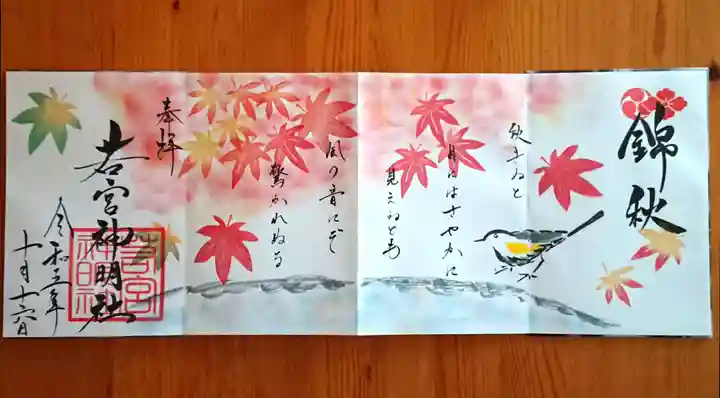 錦秋
秋きぬと
目にはさやかに
見えねども
風の音にぞ
驚かれぬる
奉拝
若宮神明社
若宮神明社
令和五年
十月十六日